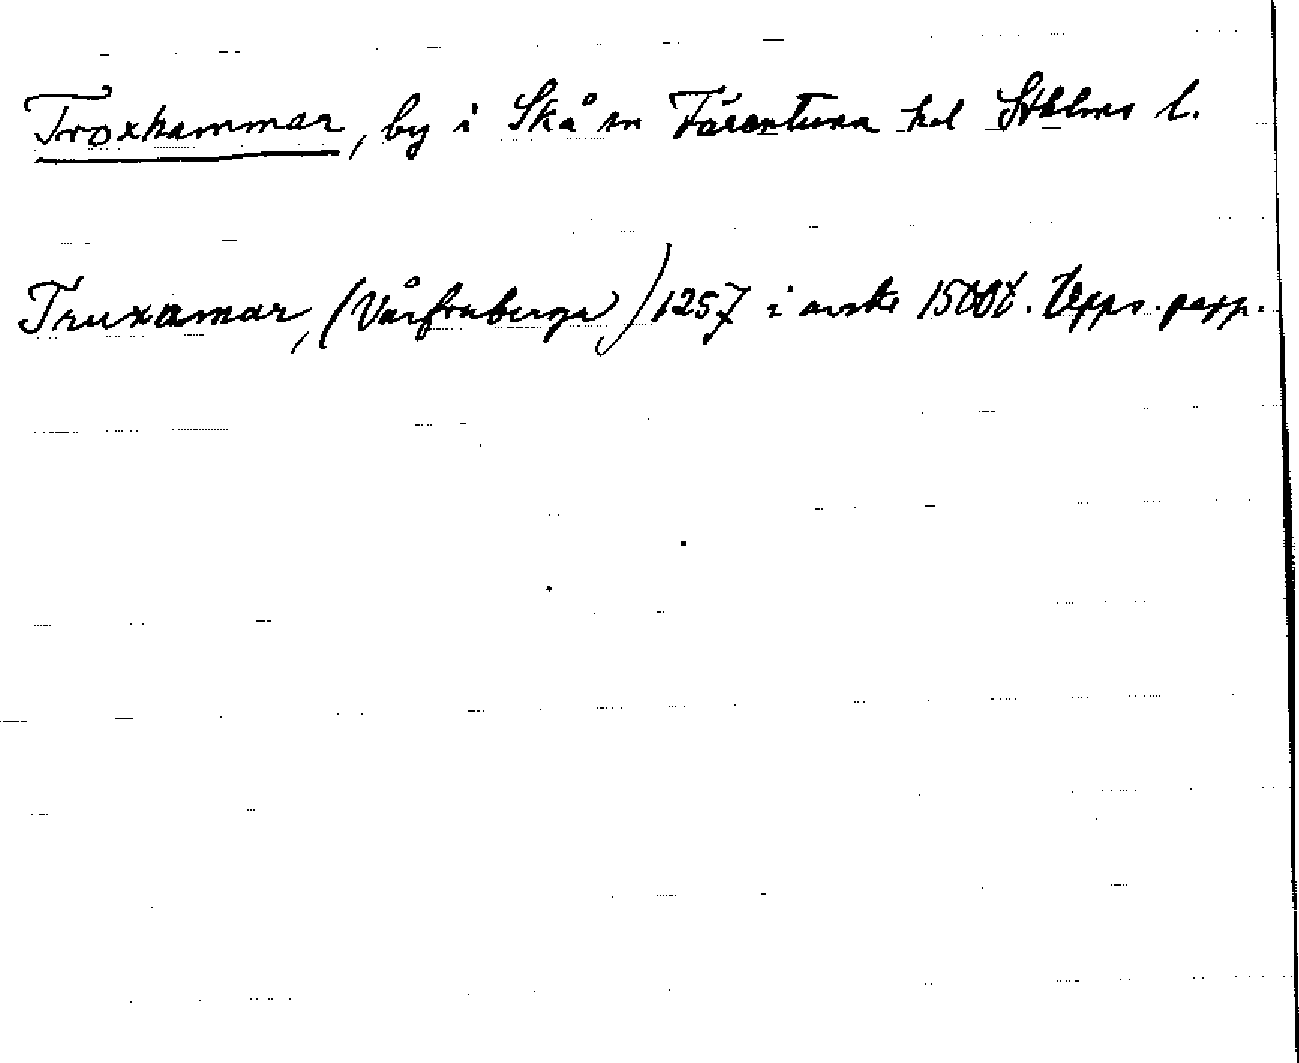 Troxhammar, by i Skå sn Färentuna hd Sthlms l.
Truxamar, (Vårfruberga) 1257 i avskr 1500t. Upps. papp.